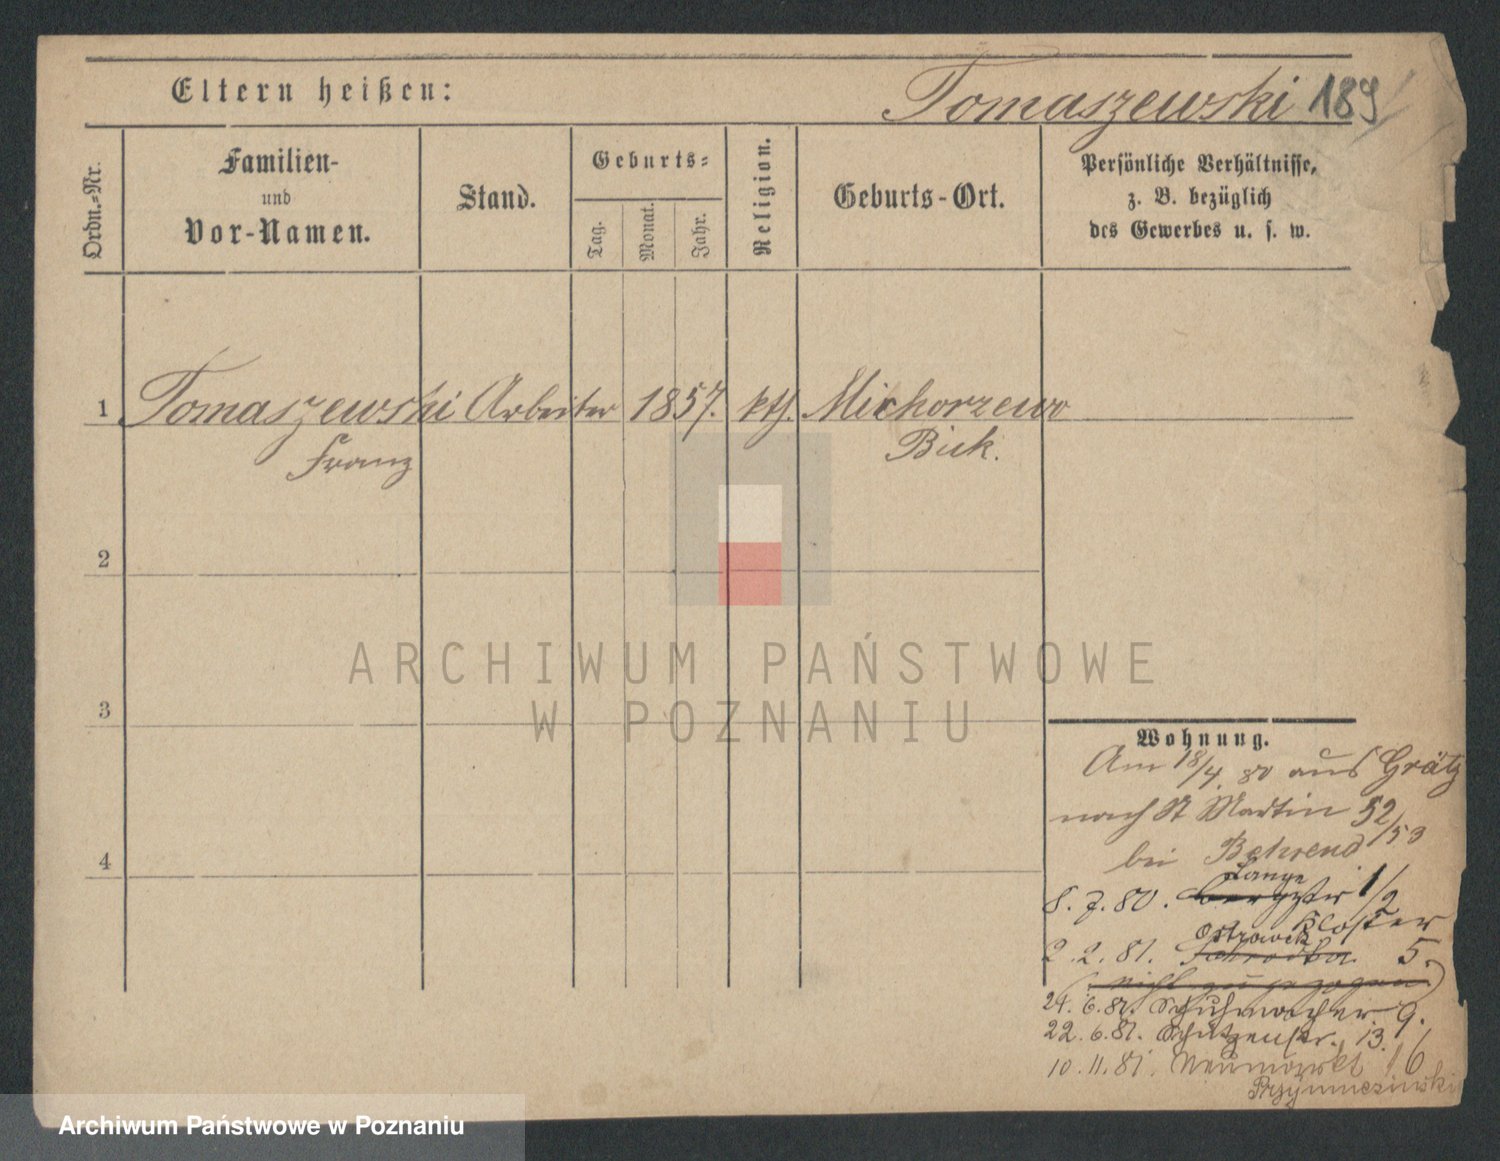 Eltern heißen:
Tomaszewski 189
Ordn.-Nr.
Familien-
und
Vor-Namen.
Stand.
Geburts-
Tag.
Monat.
Jahr.
Religion.
Geburts-Ort.
Persönliche Verhältnisse,
z. B. bezüglich
des Gewerbes u. s. w.
1 Tomaszewski Arbeiter 1857. kth. Michorzewo
Franz Buk.
2
3
4
ARCHIWUM PAŃSTWOWE
W POZNANIU
Wohnung.
Am 18/4. 80 aus Grätz
nach St Martin 52/53
bei Behrend
Lange
8. 7. 80. 1/2
Kloster
Ostrowek
2. 2. 81. Schrodka 5.
(nicht zugezogen)
21. 6. 81. Schuhmacher 9.
22. 6. 81. Schützenstr. 13.
10. 11. 81. Neumarkt 16
Archiwum Państwowe w Poznaniu